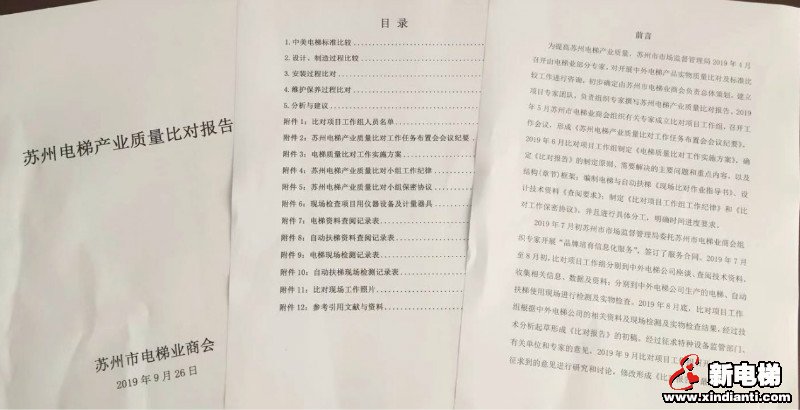 苏州电梯产业质量比对报告
苏州市电梯业商会
2019 年 9 月 26 日
目 录
1.中美电梯标准比较
2.设计、制造过程比较
3.安装过程比对
4.维护保养过程比对
5.分析与建议
附件 1：比对项目工作组人员名单
附件 2：苏州电梯产业质量比对工作任务布置会会议纪要
附件 3：电梯质量比对工作实施方案
附件 4：苏州电梯产业质量比对小组工作纪律
附件 5：苏州电梯产业质量比对小组保密协议
附件 6：现场检查项目用仪器设备及计量器具
附件 7：电梯资料查阅记录表
附件 8：自动扶梯资料查阅记录表
附件 9：电梯现场检测记录表
附件 10：自动扶梯现场检测记录表
附件 11：比对现场工作照片
附件 12：参考引用文献与资料
前言
为提高苏州电梯产业质量，苏州市市场监督管理局 2019 年 4 月
召开由电梯业部分专家，对开展中外电梯产品实物质量比对及标准比
较工作进行咨询。初步确定由苏州市电梯业商会负责总体策划，建立
项目专家团队，负责组织专家撰写苏州电梯产业质量比对报告。2019
年 5 月苏州市电梯业商会组织有关专家成立比对项目工作组，召开工
作会议，形成《苏州电梯产业质量比对工作任务布置会会议纪要》。
2019 年 6 月比对项目工作组制定《电梯质量比对工作实施方案》，确
定《比对报告》的制定原则，需要解决的主要问题和重点内容，以及
结构(章节)框架；编制电梯与自动扶梯《现场比对作业指导书》、设
计技术资料《查阅要求》；制定《比对项目工作组工作纪律》和《比
对工作保密协议》，并且进行具体分工，明确时间进度要求。
2019 年 7 月初苏州市市场监督管理局委托苏州市电梯业商会组
织专家开展"品牌培育信息化服务"，签订了服务合同。2019 年 7 月
至 8 月初，比对项目工作组分别到中外电梯公司座谈、查阅技术资料，
收集相关信息、数据及资料；分别到中外电梯公司生产的电梯、自动
扶梯使用现场进行检测及实物检查。2019 年 8 月底，比对项目工作
组根据中外电梯公司的相关资料及现场检测及实物检查结果，经过技
术分析起草形成《比对报告》的初稿。经过征求特种设备监管部门、
有关单位和专家的意见，2019 年 9 月比对项目工作组
征求到的意见进行研究和讨论，修改形成《比
新电梯
www.xindianti.com